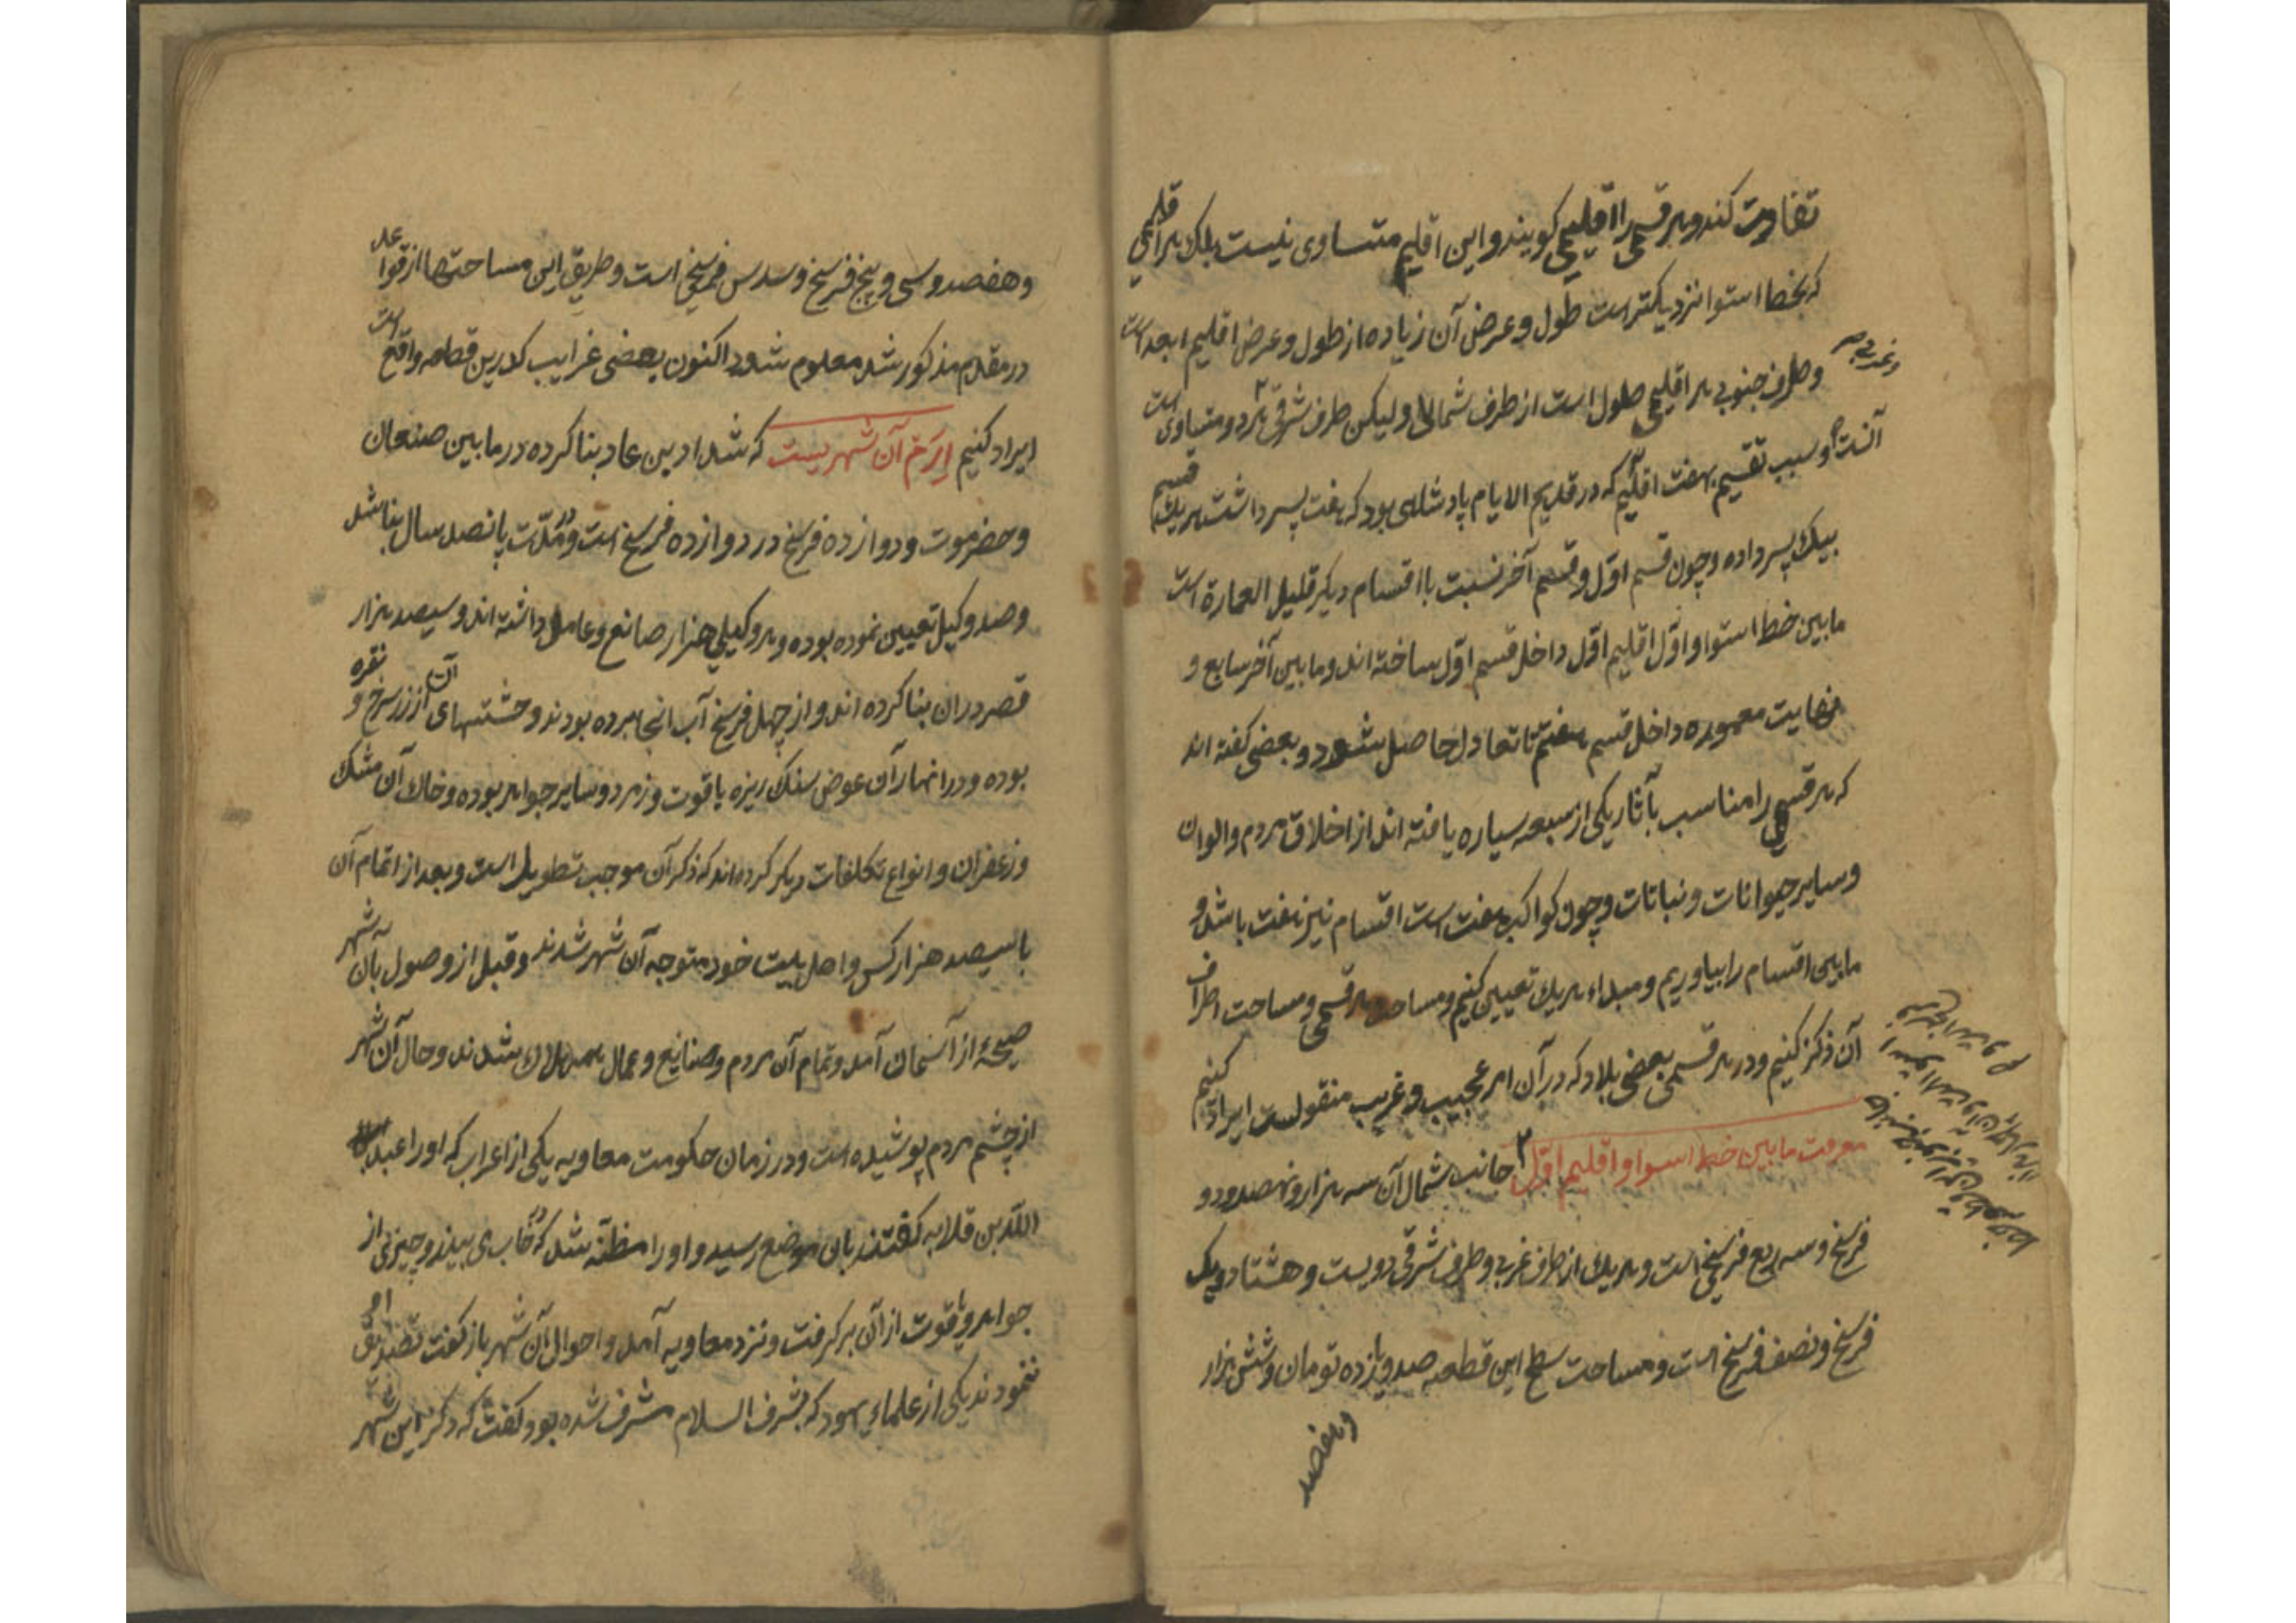 تفاوت کند و هر قسمی را اقلیمی کویند و این اقلیم متساوی نیست بلک هر اقلیمی
که بخط استوا نزدیکتر است طول و عرض آن زیاده از طول و عرض اقلیم ابعد است
و طرف جنوبی هر اقلیمی طول است از طرف شمالی و لیکن طرف شرقی هر دو متساوی است
آنست و سبب تقسیم بهفت اقلیم که در قدیم الایام پادشاهی بود که هفت پسر داشت هر یک قسم
بیک پسر داده و چون قسم اول و قسم آخر نسبت با اقسام دیکر قلیل العمارة است
مابین خط استوا و اول اقلیم اول داخل قسم اول ساخته اند و مابین آخر سابع و
نهایت معموره داخل قسم هفتم تا تعادل حاصل شود و بعضی کفته اند
که هر قسمی را مناسب بآثار یکی از سبعه سیاره یافته اند از اخلاق مردم و الوان
و سایر حیوانات و نباتات و چون کواکب هفت است اقسام نیز هفت باشد و
مابین اقسام را بیاوریم و مبداء هر یک تعیین کنیم و مساحت هر قسمی و مساحت اطراف
آن ذکر کنیم و در هر قسمی بعضی بلاد که در آن امر عجیب و غریب منقولست ایراد کنیم
معرفت مابین خط استوا و اقلیم اول جانب شمال آن سه هزار و نهصد و دو
فرسخ و سه ربع فرسخی است و هر یک از طرف غربی و طرف شرقی دویست و هشتاد و یک
فرسخ و نصف فرسخ است و مساحت سطح این قطعه صد و یازده تومان و شش هزار
و هفصد
و هفصد و سی و پنج فرسخ و سدس فرسخی است و طریق این مساحتها از قواعد
در مقدم مذکور شد معلوم شود اکنون بعضی غرایب کدرین قطعه واقع است
ایراد کنیم اِرَم آن شهریست که شداد بن عاد بنا کرده در مابین صنعان
و حضرموت و دوازده فرسخ در دوازده فرسخ است و در مدّت پانصد سال بنا شد
و صد وکیل تعیین نموده بوده و هر وکیلی هزار صانع و عامل داشته اند و سیصد هزار
قصر دران بنا کرده اند و از چهل فرسخ آب انجا برده بودند و خشتهای آن از زر سرخ و نقره
بوده و در انهار آن عوض سنک ریزه یاقوت و زمرد و سایر جواهر بوده و خاک آن مشک
و زعفران و انواع تکلفات دیکر کرده اند که ذکر آن موجب تطویل است و بعد از اتمام آن
با سیصد هزار کس و اهل بیت خود متوجه آن شهر شدند و قبل از وصول بآن شهر
صیحهٔ از آسمان آمد و تمام آن مردم و صنایع و عمال همه هلاک شدند و حال آن شهر
از چشم مردم پوشیده است و در زمان حکومت معاویه یکی از اعراب که او را عبد
اللّه بن قلابه کفتند بان موضع رسید و او را مظنّه شد که در خاب می بیند و چیزی از
جواهر و یاقوت از آن برکرفت و نزد معاویه آمد و احوال آن شهر باز کفت تصدیق او
ننمودند یکی از علماء یهود که بشرف السلام مشرف شده بود کفت که ذکر این شهر